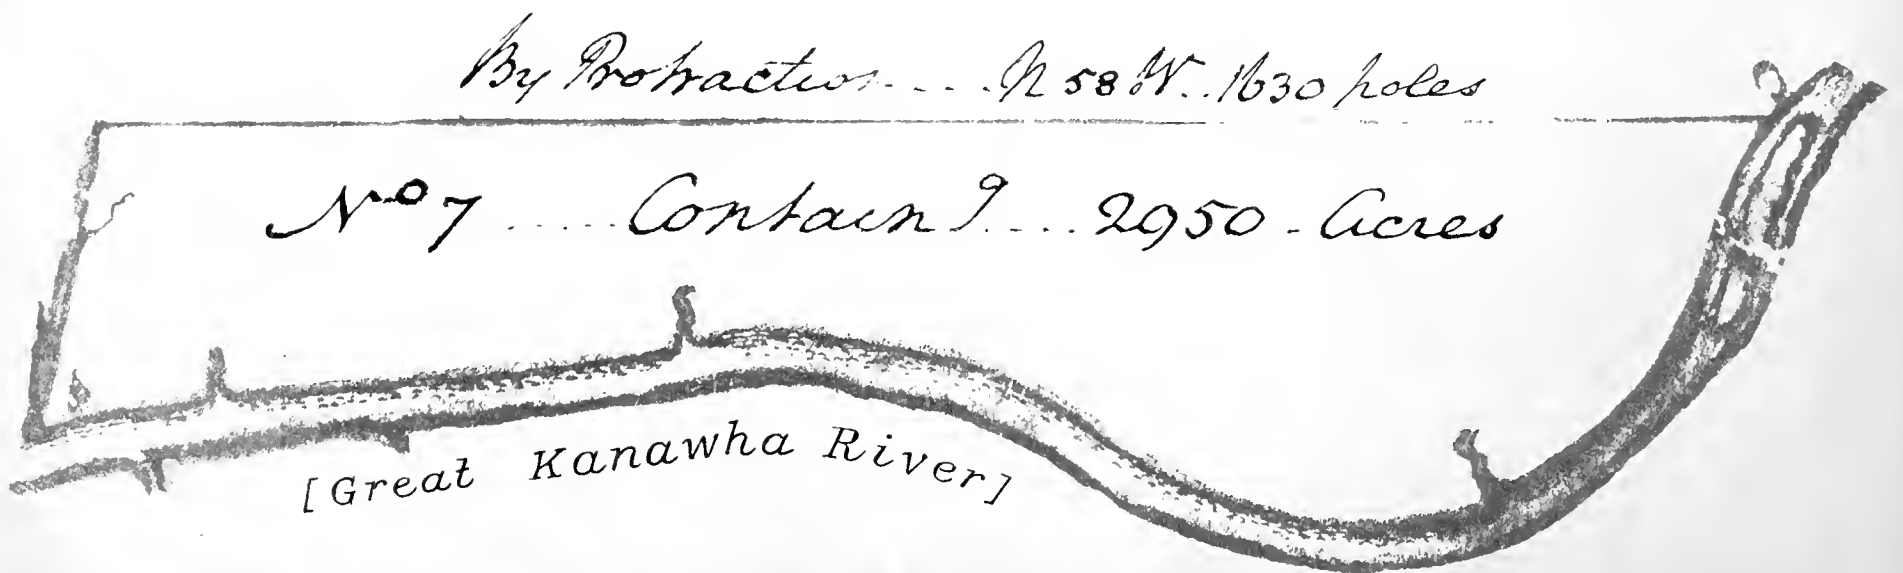 By Protraction .... N 58 W .. 1630 poles
No 7 ..... Containg .... 2950 - Acres
[Great Kanawha River]